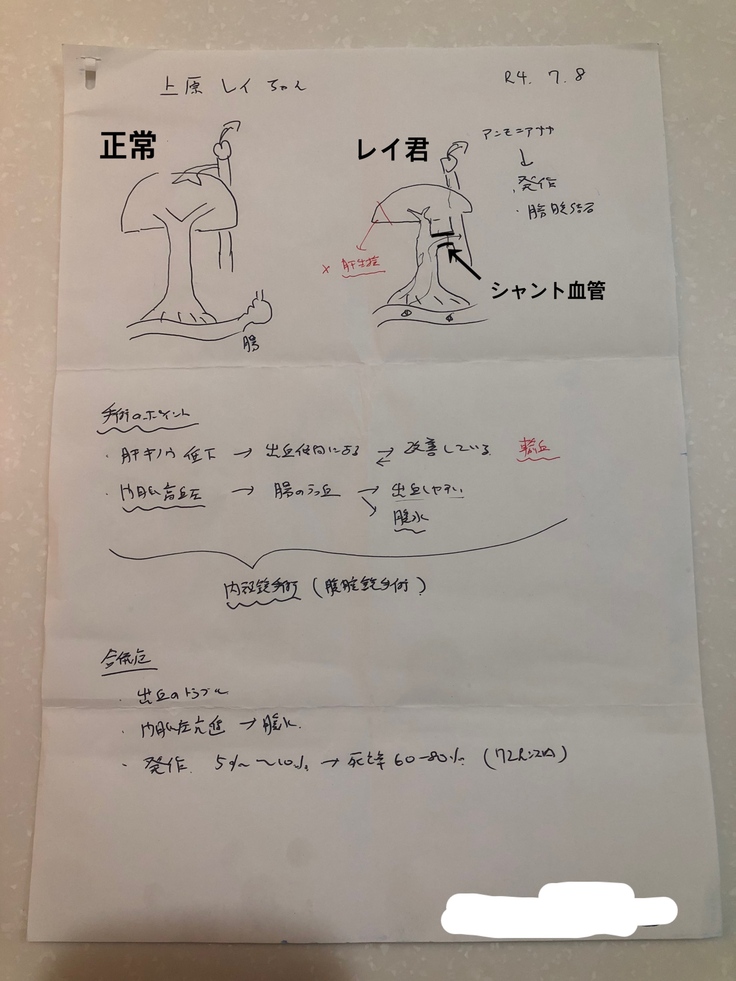 上原 レイ ちゃん
R4. 7. 8
正常
腸
レイ君
アンモニア
↓
発作
・膀胱結石
× 肝生検
シャント血管
手術のポイント
・肝キノウ 低下 → 出血傾向にある → 改善している 輸血
・門脈高血圧 → 腸のうっ血 → 出血しやすい
腹水
内視鏡手術 (腹腔鏡手術)
合併症
・出血のトラブル
・門脈圧亢進 → 腹水.
・発作 5%~10% → 死亡率 60-80% (72h以内)